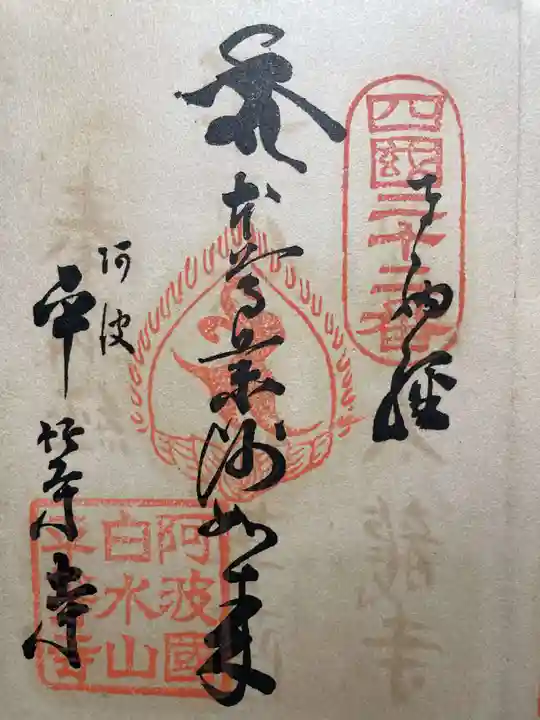 四國二十二番
奉納經
本尊薬師如来
阿波
平等寺
阿波國
白水山
平等寺
龍寺